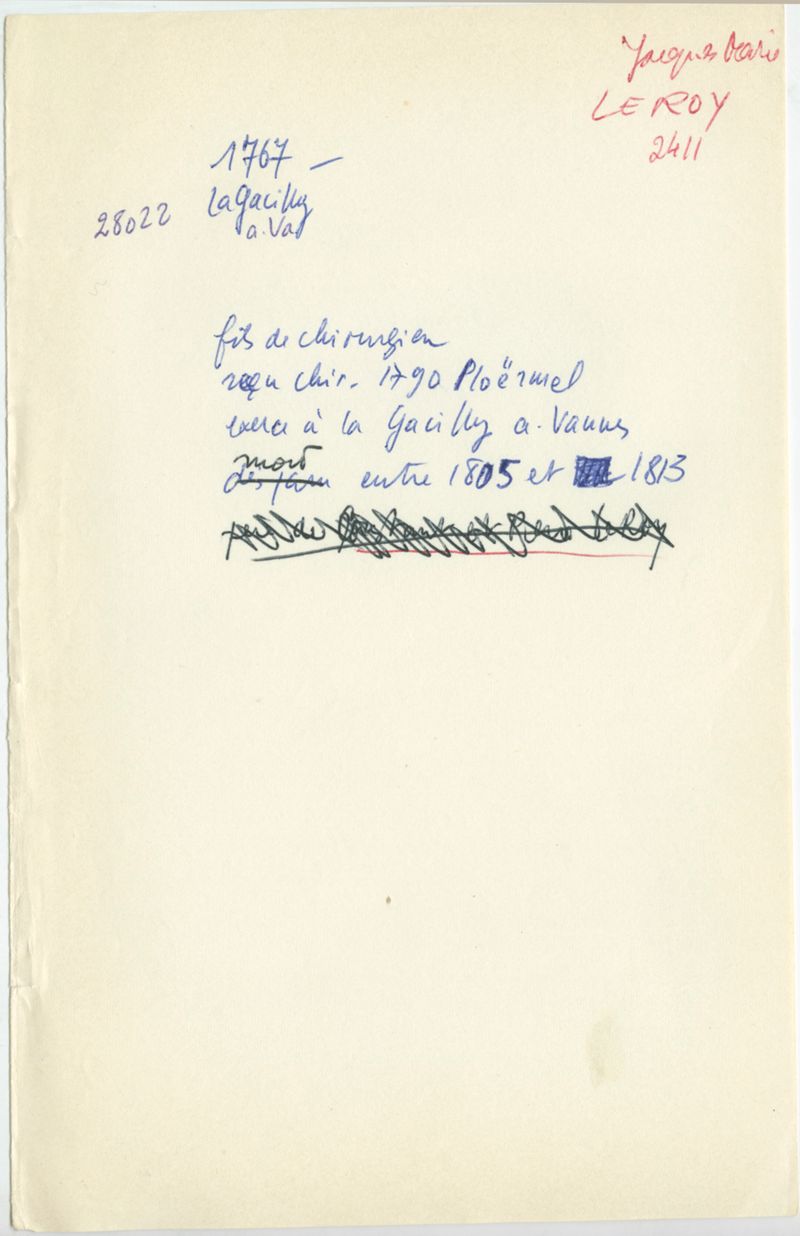 Jacques Marie
LEROY
2411
1767 –
La Gacilly
28022
a. Va
fils de chirurgien
reçu chir. 1790 Ploërmel
exerce à la Gacilly a. Vannes
mort
entre 1805 et 1813